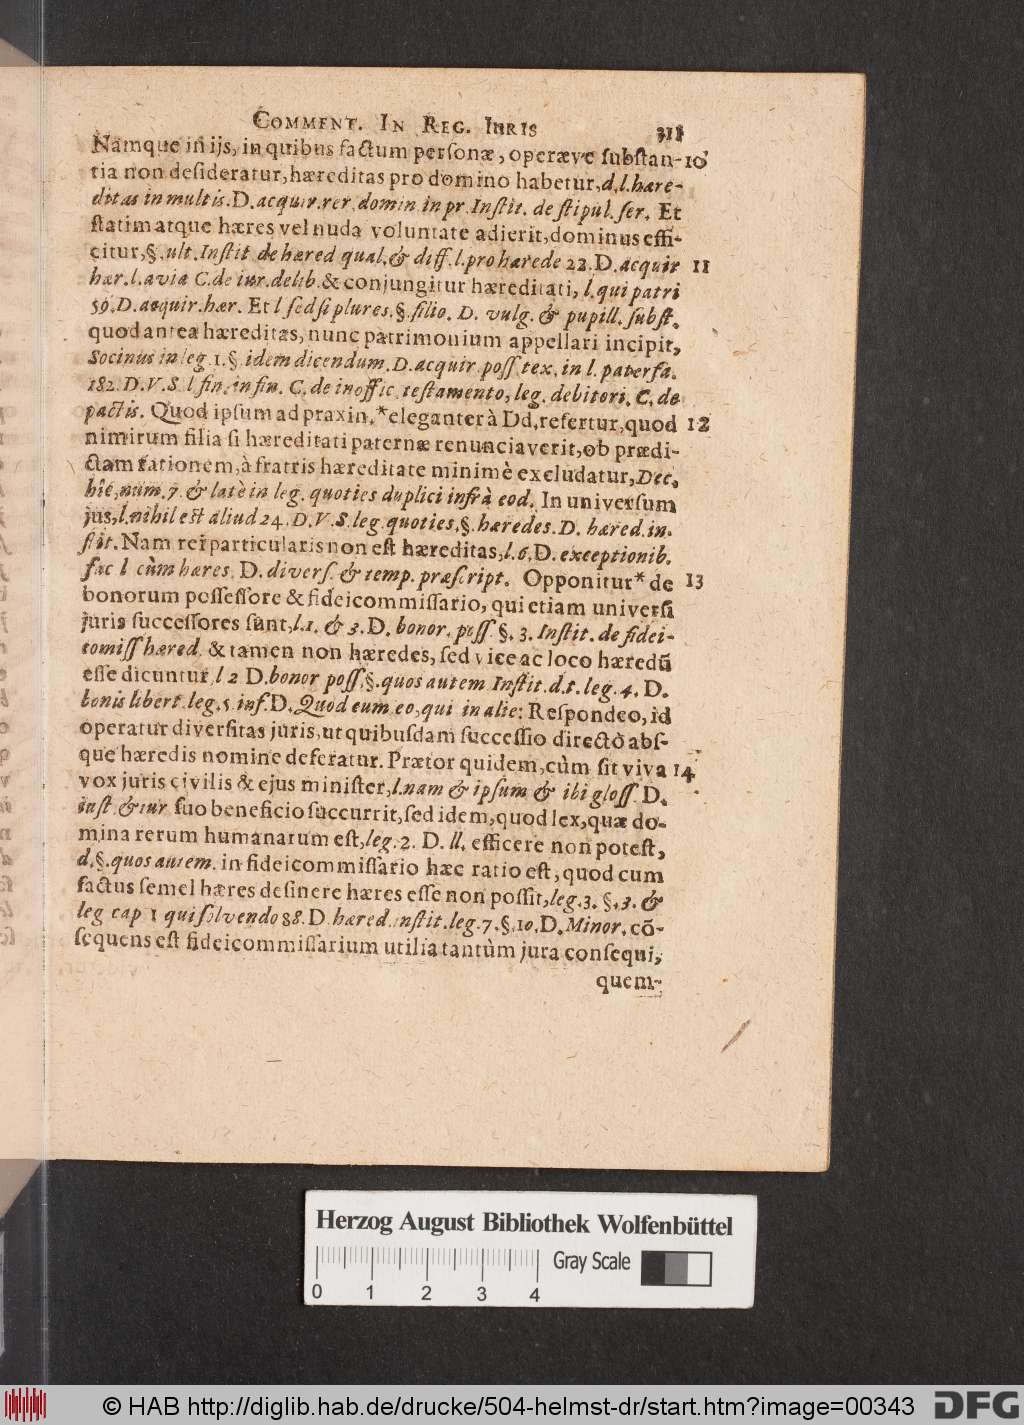 COMMENT. IN REG. IURIS 311
Namque in ijs, in quibus factum personæ, operæve substan- 10
tia non desideratur, hæreditas pro domino habetur, d. l. hære-
ditas in multis. D. acquir. rer. domin in pr. Instit. de stipul. ser. Et
statim atque hæres vel nuda voluntate adierit, dominus effi-
citur, §. ult. Instit de hæred qual. & diff. l. pro hærede 22. D. acquir 11
hær. l. avia C. de iur. delib. & conjungitur hæreditati, l. qui patri
59. D. acquir. hær. Et l sed si plures. §. filio. D. vulg. & pupill. subst.
quod antea hæreditas, nunc patrimonium appellari incipit,
Socinus in leg. 1. §. idem dicendum. D. acquir poss tex. in l. paterfa.
182. D. V. S. l fin. in fin. C. de inoffic. testamento, leg. debitori. C. de
pactis. Quod ipsum ad praxin, * eleganter à Dd. refertur, quod 12
nimirum filia si hæreditati paternæ renunciaverit, ob prædi-
ctam rationem, à fratris hæreditate minimè excludatur, Dec.
hîc, num. 7. & latè in leg. quoties duplici infrà eod. In universum
jus, l. nihil est aliud 24. D. V. S. leg. quoties. §. hæredes. D. hæred. in-
stit. Nam rei particularis non est hæreditas, l. 6. D. exceptionib.
fac l cùm hæres. D. divers. & temp. præscript. Opponitur * de 13
bonorum possessore & fideicommissario, qui etiam universi
juris successores sunt, l. 1. & 3. D. bonor. poss §. 3. Instit. de fidei-
comiss hæred. & tamen non hæredes, sed vice ac loco hæredū
esse dicuntur, l 2 D. bonor poss. §. quos autem Instit. d. t. leg. 4. D.
bonis libert. leg. 5 inf. D. Quod cum eo, qui in alie: Respondeo, id
operatur diversitas juris, ut quibusdam successio directò abs-
que hæredis nomine deferatur. Prætor quidem, cùm sit viva 14
vox juris civilis & ejus minister, l. nam & ipsum & ibi gloss. D.
iust. & iur suo beneficio succurrit, sed idem, quod lex, quæ do-
mina rerum humanarum est, leg. 2. D. ll. efficere non potest,
d. §. quos autem. in fideicommissario hæc ratio est, quod cum
factus semel hæres desinere hæres esse non possit, leg. 3. §. 3. &
leg cap 1 qui solvendo 88. D hæred. instit. leg. 7. §. 10. D. Minor. cō-
sequens est fideicommissarium utilia tantùm jura consequi,
quem-
Herzog August Bibliothek Wolfenbüttel
Gray Scale
0 1 2 3 4
© HAB http://diglib.hab.de/drucke/504-helmst-dr/start.htm?image=00343
DFG